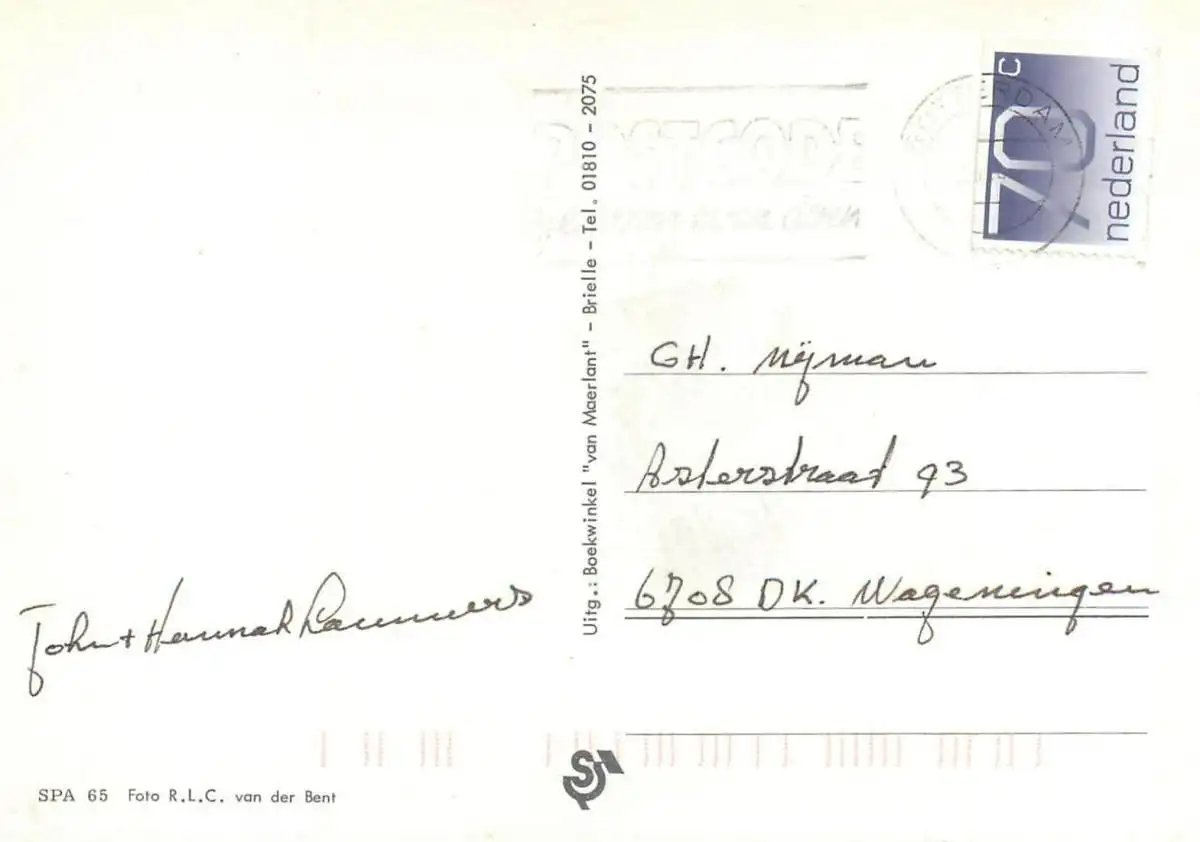 70 C nederland
Uitg.: Boekwinkel "van Maerlant" - Brielle - Tel. 01810 - 2075
GH. Nijman
Asterstraat 93
6708 DK. Wageningen
John + Hannah Lammers
SPA 65 Foto R.L.C. van der Bent